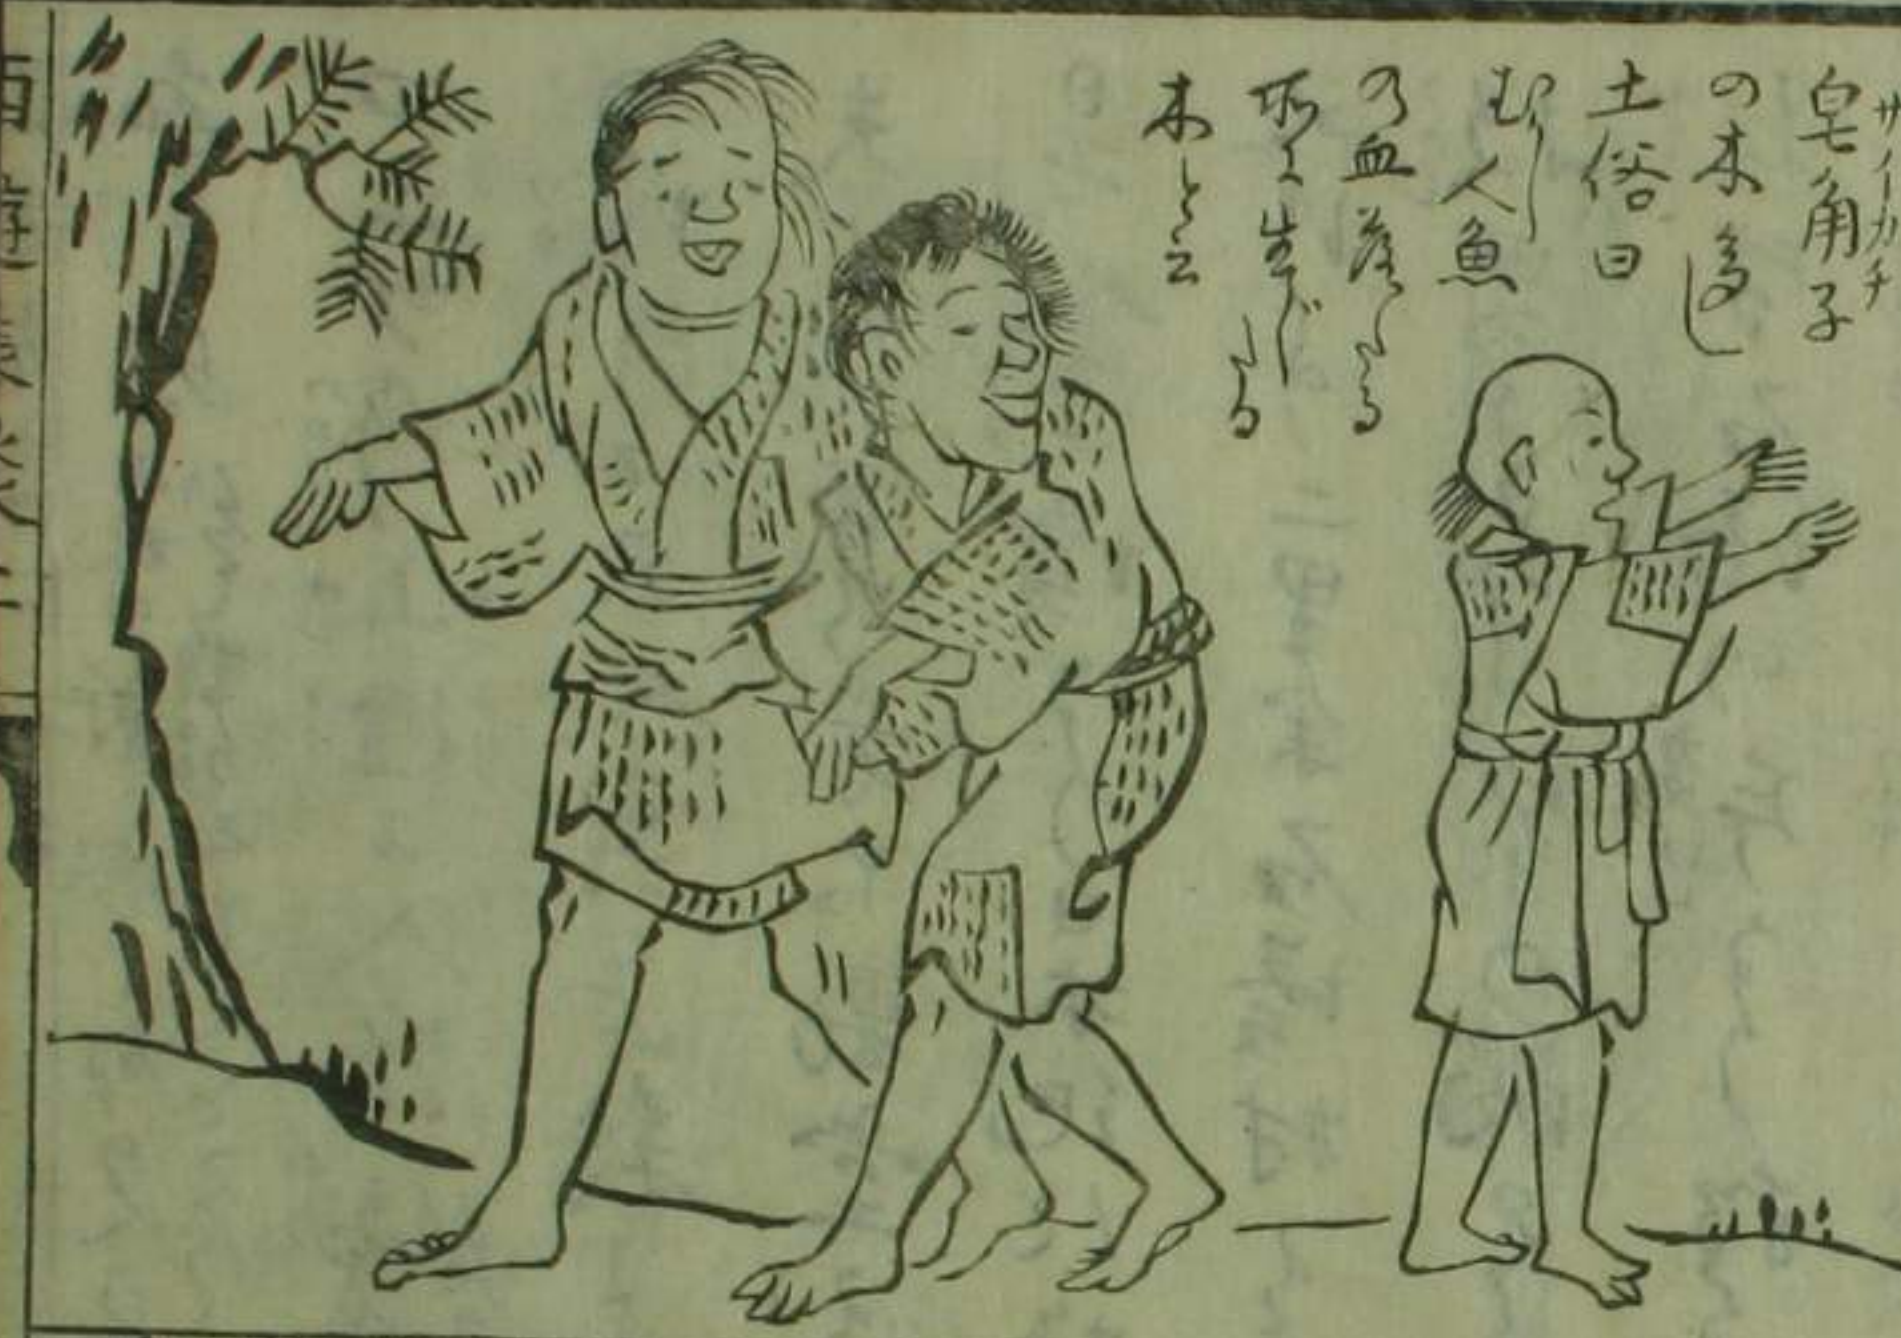 皂角子
サイカチ
の木多し
土俗曰
むかし人魚
の血落たる
所に生じたる
木と云